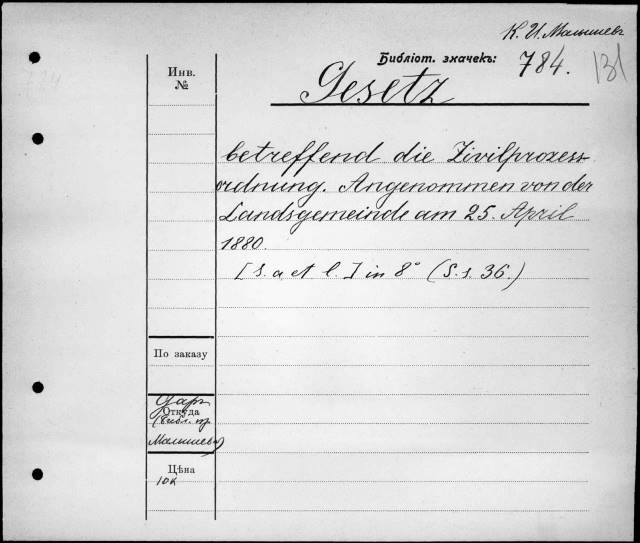 К. И. Малышевъ
Библіот. значекъ: 784.
131
Инв.
№
Gesetz
betreffend die Zivilprozess-
ordnung. Angenommen von der
Landsgemeinde am 25. April
1880.
[S. a et l.] in 8° (S.s. 36.)
По заказу
Даръ
Откуда
(библ. пр.
Малышева)
Цѣна
10к